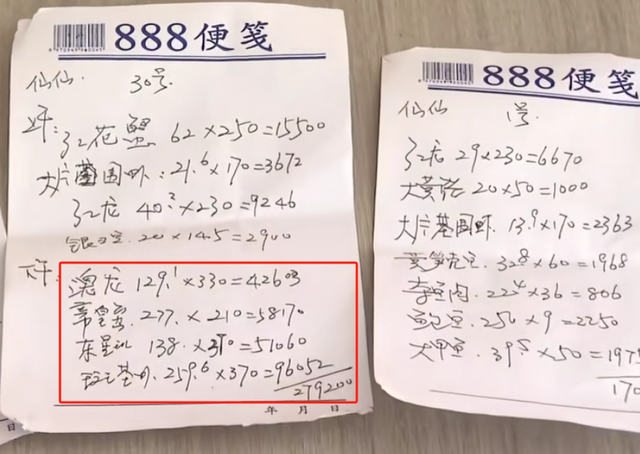 888便笺
仙仙. 30号.
上午: 红花蟹 62×250=15500
大片基围虾: 21.6×170=3672
红龙 40.2×230=9246
20×14.5=2900
下午: 澳龙 129.1×330=42603
277.×210=58170
东星斑 138.×370=51060
259.6×370=96052
279200
年 月 日
日
888便笺
仙仙 1号.
红龙 29×230=6670
20×50=1000
大片基围虾. 13.9×170=2363
32.8×60=1968
22.4×36=806
250×9=2250
39.5×50=1975
170